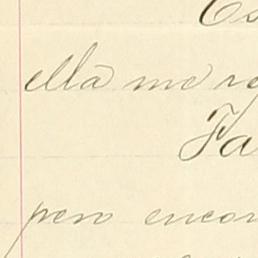 Es
ella me re
Fa
pero encon